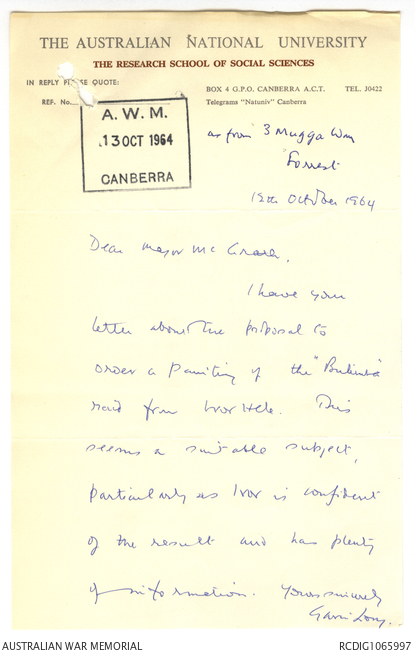 THE AUSTRALIAN NATIONAL UNIVERSITY
THE RESEARCH SCHOOL OF SOCIAL SCIENCES
IN REPLY QUOTE:
REF. No.
BOX 4 G.P.O. CANBERRA A.C.T. TEL. J0422
Telegrams "Natuniv" Canberra
A.W.M.
13 OCT 1964
CANBERRA
as from 3 Mugga Way
Forrest
12th October 1964
Dear Major McGrath,
I have your
letter about the proposal to
order a painting of the
raid from Ivor Hele. This
seems a suitable subject,
particularly as Ivor is confident
of the result and has plenty
of information. Yours sincerely
Gavin Long.
AUSTRALIAN WAR MEMORIAL
RCDIG1065997